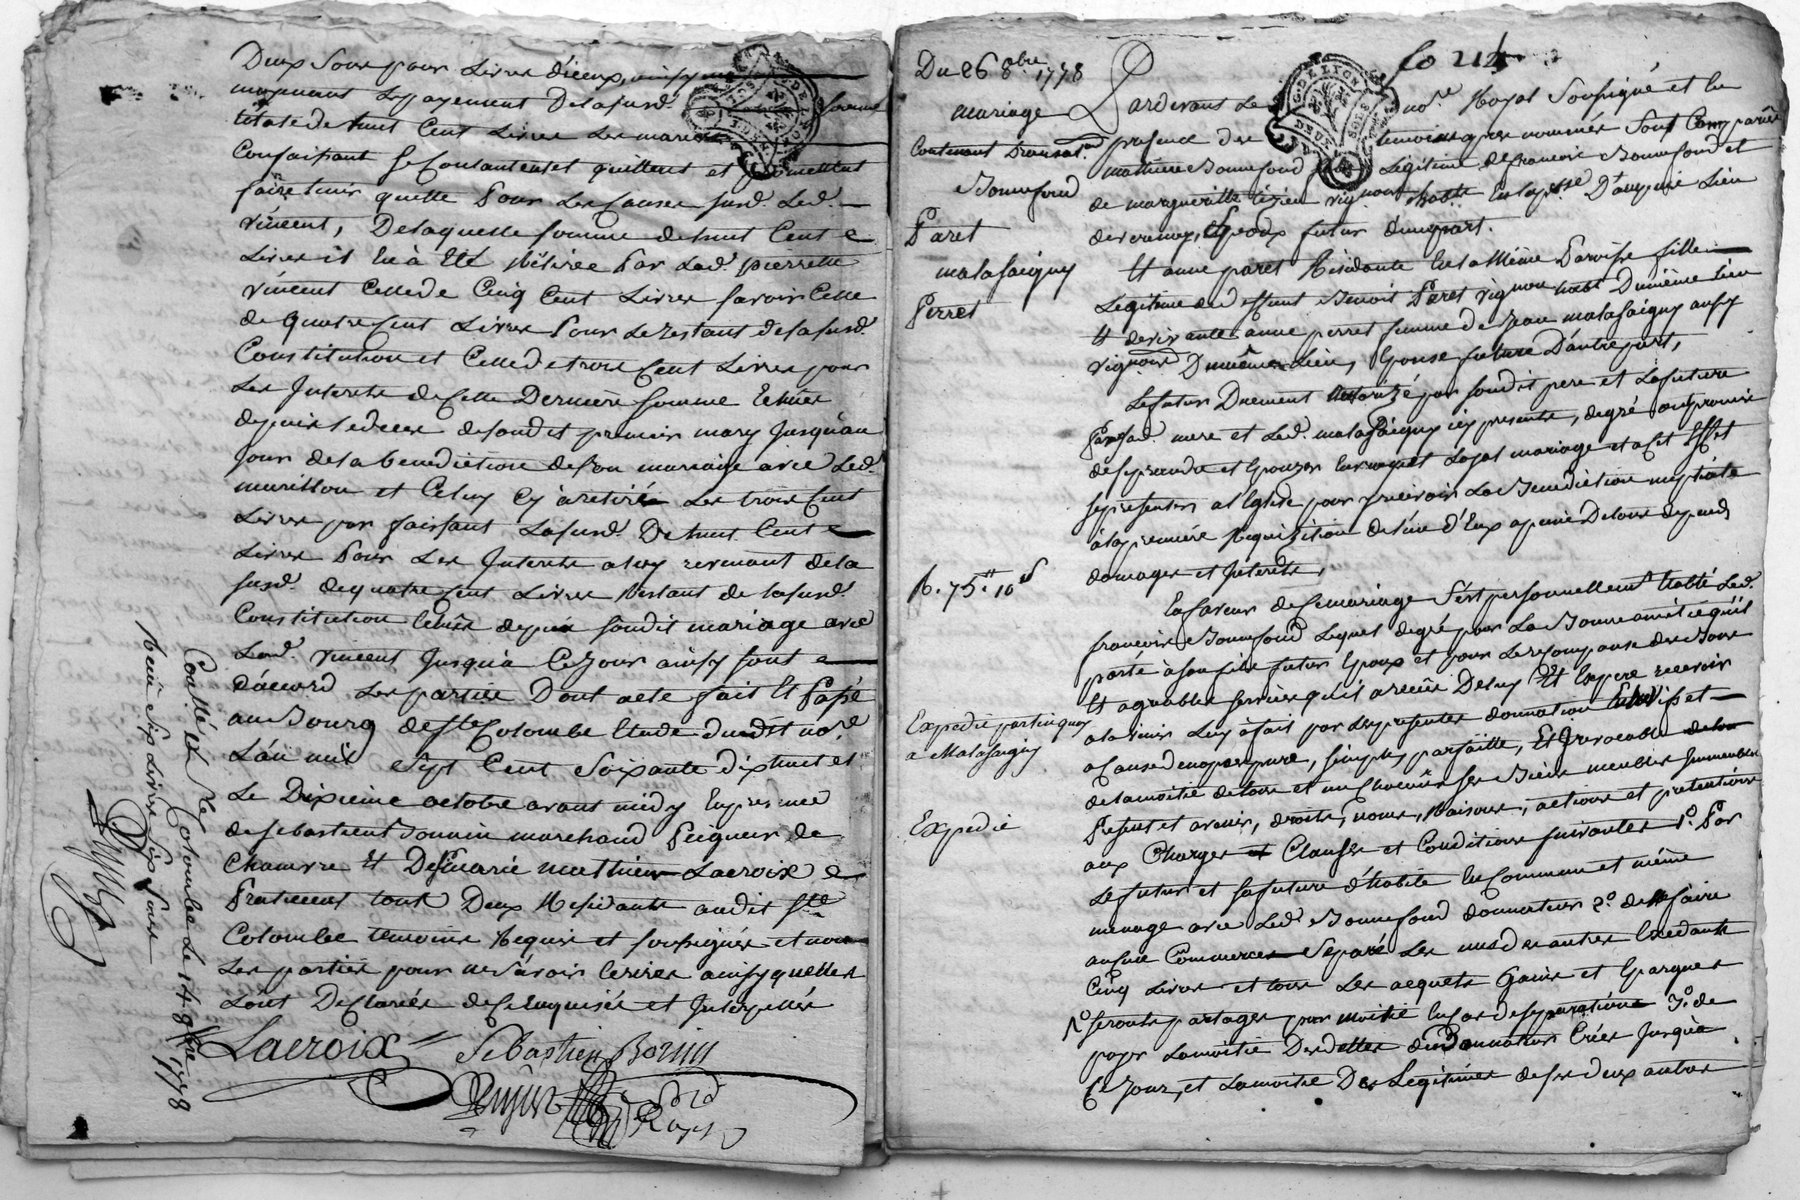 Deux Sous pour Livre d'iceux, ainsy
moyenant Le payement De lasusd.
totale de huit Cent Livres Les mariés
Confaisant Se Contantent et quittent et promettent
faire tenir quitte Pour Les Causes susd. Led.
vincent, De laquelle somme de huit Cent
Livres il en à été Rétirée Par Lad. pierrette
vincent Celle de Cinq Cent Livres savoir Celle
de quatre Cent Livres Pour Le restant de lasusd.
Constitution et Celle de trois Cent Livres pour
Les Interets de Cette Derniere somme
depuis le deces de sondit premier mary Jusqu'au
Jour de la benediction de son mariage avec Led.
murillon et Celuy cy à retiré Les trois Cent
Livres par faisant Lasusd. De huit Cent
Livres Pour Les Interets a luy revenant de la
susd. de quatre Cent Livres Restant de lasusd.
Constitution depuis sondit mariage avec
Lad. vincent Jusqu'à Ce Jour ainsy sont
D'accord Les parties Dont acte fait Et Passé
au Bourg de Ste Colombe Etude dudit no.re
L'an mil Sept Cent Soixante dixhuit et
Le Dixieme octobre avant midy En presence
de sebastient Bonnin marchand Peigneur de
Chanvre Et De mathieu Lacroix
Praticient tout Deux Residants audit Ste
Colombe temoins Requis et soussignés et non
Les parties pour ne Sávoir Ecrires ainsy quelles
L'ont Declarés de Ce Enquisés et Interpellés
Lacroix Sebastien Bonin
Controllé à Ste Colombe Le 14 8bre 1778
Reçu Six Livres Six Sous
Du 26 8bre 1778
fo 214
mariage
Contenant Donnat.on
Bonnefond
Paret
malassaigny
Perret
R. 75.tt 10s
Expedié partinquoy
a Malassaigny
Expedié
Pardevant Le no.re Royal Soussigné et en
presence des temoins apres nommés Sont Comparus
mathieu Bonnefond fils Legitime de francois Bonnefond et
de margueritte vigneron habt. En la p.sse D'ampuis Lieu
de verenay, Epoux futur d'unepart.
Et anne paret Residante En la Même Paroisse fille
Legitime de deffunt Benoit Paret vigneron habt. Du même Lieu
Et de vivante anne perret femme de Jean malassaigny aussy
vigneron Du même Lieu, Epouse future D'autrepart,
Le futur Duement autorizé par sondit pere et La future
Par sad. mere et Led. malassaigny icy presents, de gré ont promis
de se prendre et Epouzer En vray et Loyal mariage et a Cet Effet
se presenter a l'Eglise pour y recevoir La Benediction nuptiale
à la premiere Requizition de L'un d'Eux a peine De tous depends
domages et Interets,
En faveur de Ce mariage S'est personnellement Etabli Led.
francois Bonnefond Lequel de gré pour La Bonne amitié qu'il
porte à son fils futur Epoux et pour Le recompense des Bons
Et agreables services qu'il a recûs De luy Et Espere recevoir
a lavenir Luy à fait par Les presentes donnation Entrevifs et
a Cause de nopces pure, simple, parfaitte, Et Irrevocable
de la moitié de tous et un Chacuns ses Biens meubles Immeubles
Present et avenir, droits, noms, Raisons, actions et pretentions
aux Charges Clauses et Conditions suivantes 1.o Par
Le futur et sa future d'habite En Commun et même
menage avec Led. Bonnefond donnateur 2.o de ne faire
aucun Commerces Separé Les uns des autres Excedants
Cinq Livres et tous Les acquets Gains et Epargnes
seronts partages par moitié En Cas de separation 3.o de
payer La moitié Des dettes du Donnateur Crées Jusqu'à
Ce Jour, et La moitié Des Legitimes de ses deux autres